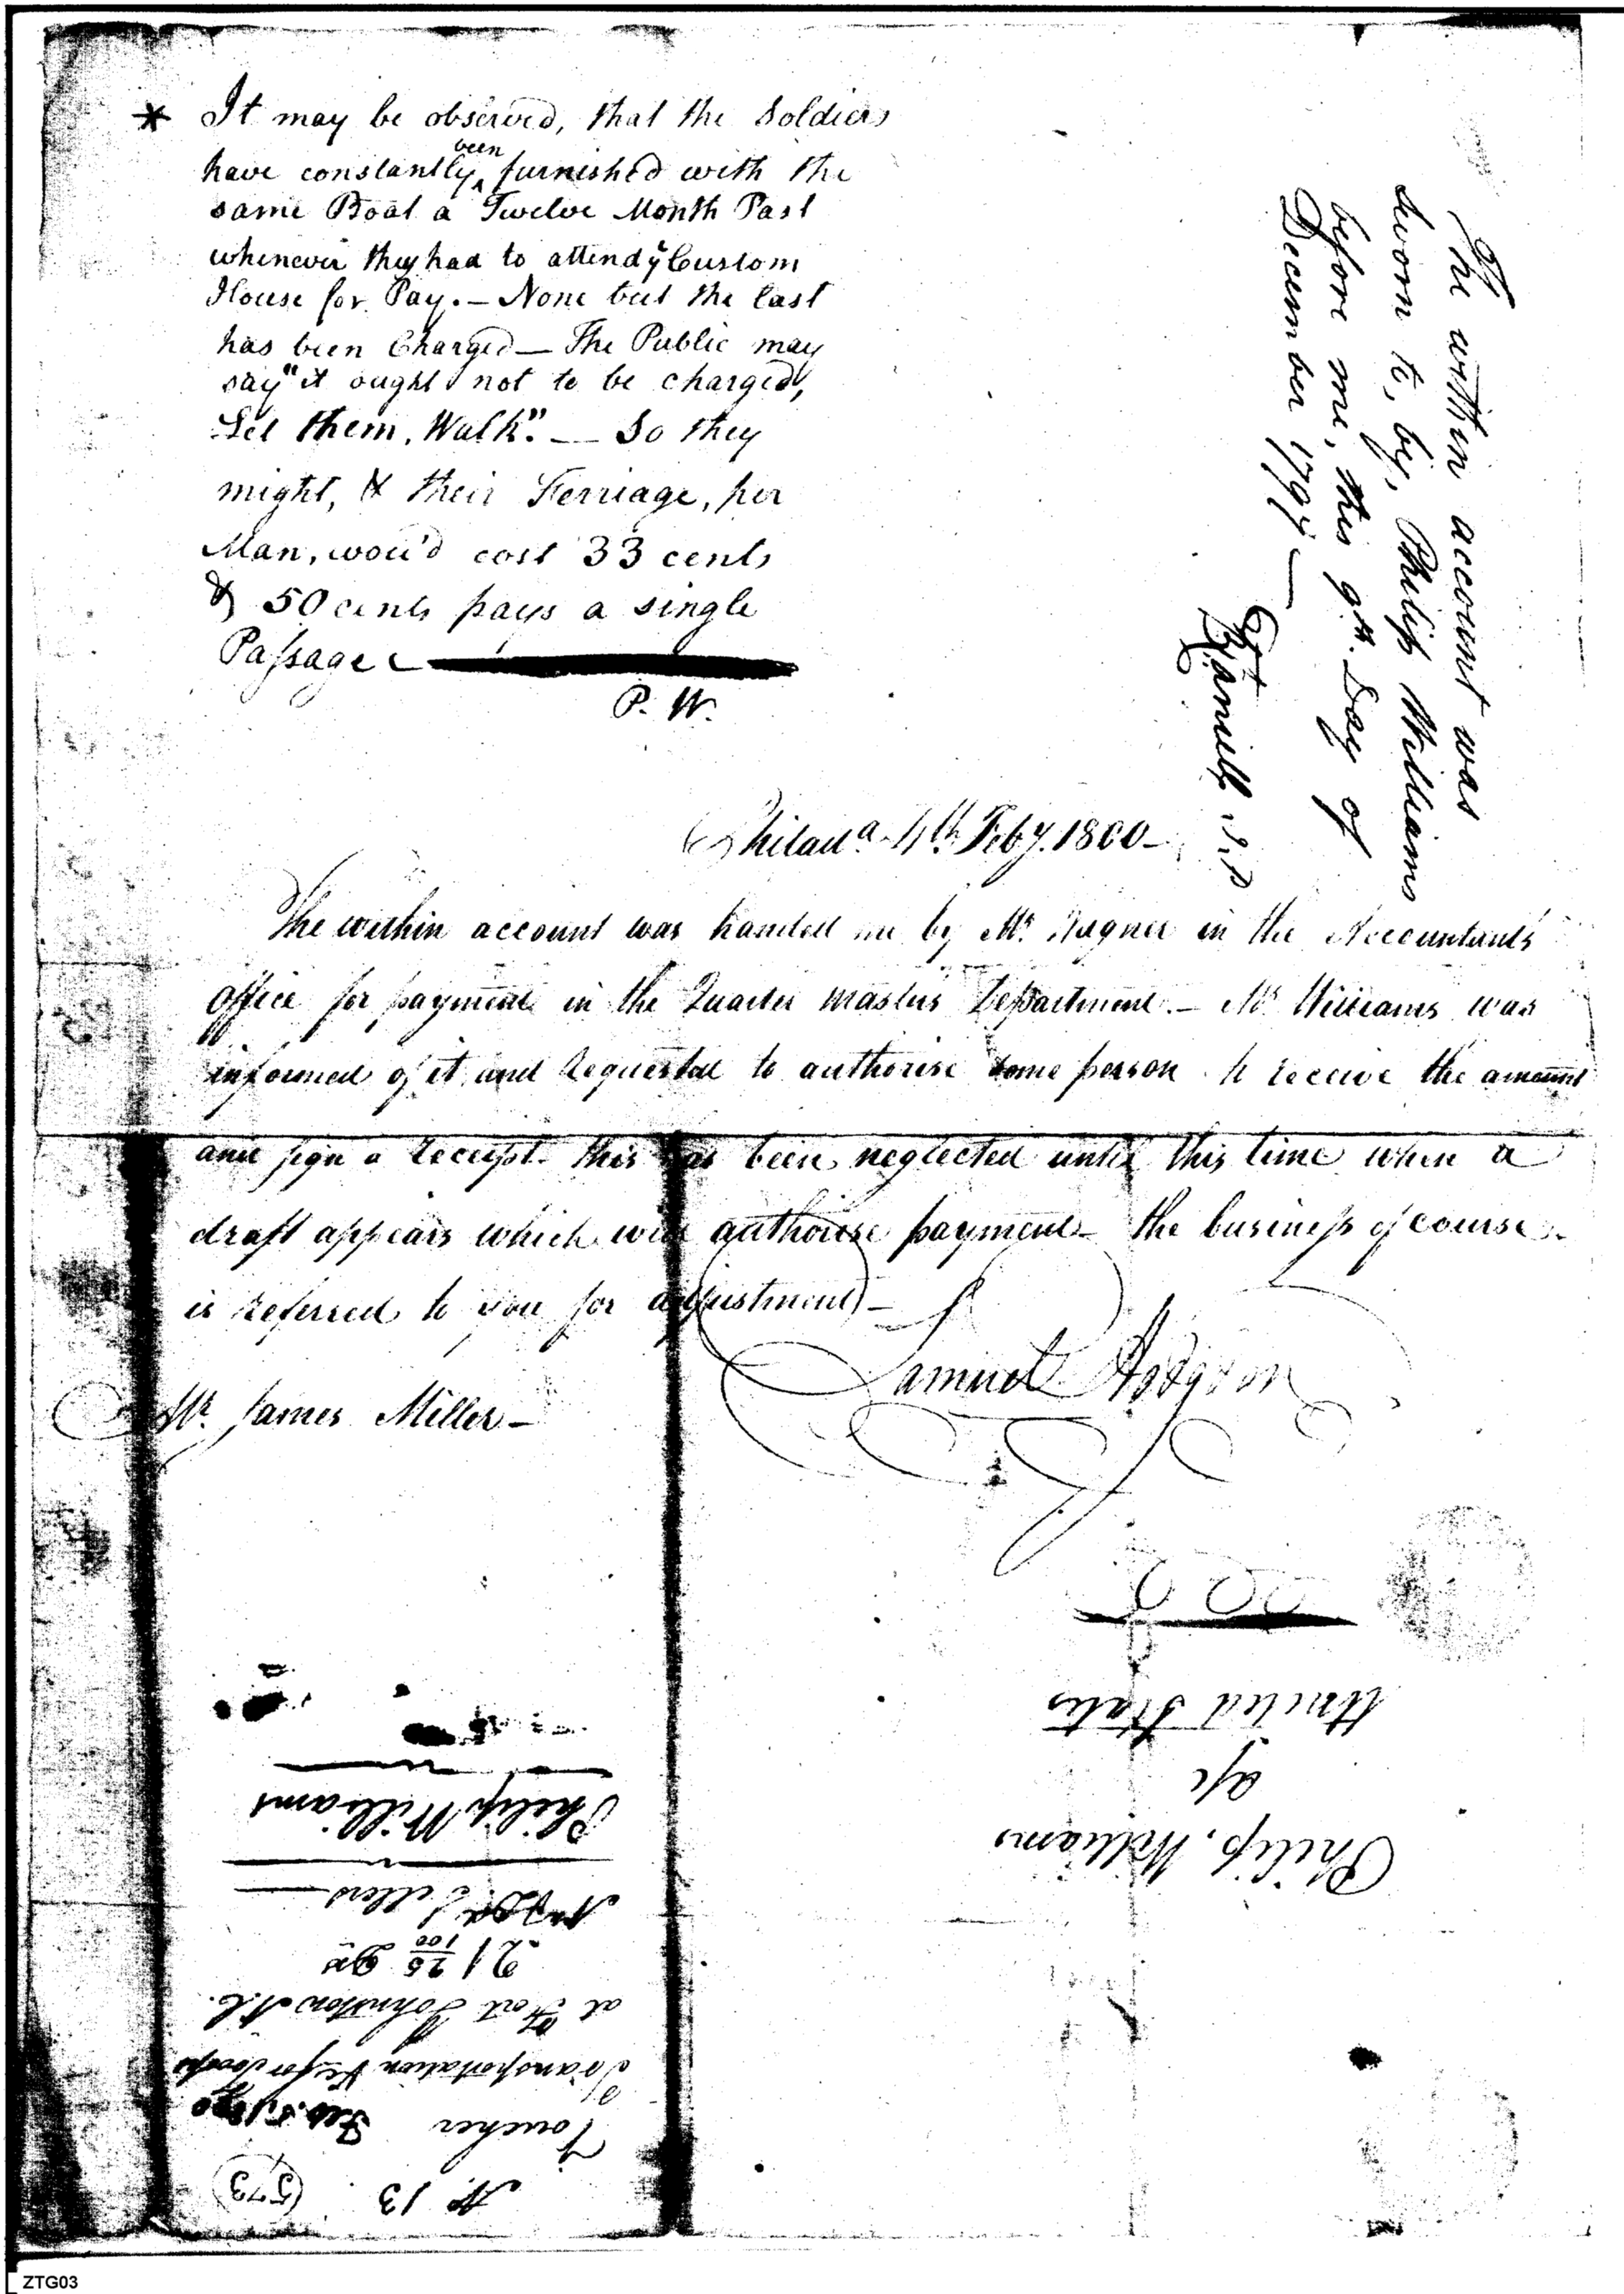 * It may be observed, that the Soldiers
have constantly been furnished with the
same Boat a Twelve Month Past
whenever they had to attend ye Custom
House for Pay. — None but the last
has been Charged — The Public may
say "it ought not to be charged,
Let them, Walk". — So they
might, & their Ferriage, per
Man, wou'd cost 33 cents
& 50 cents pays a single
Passage
P. W.
The within account was
sworn to, by, Philip Williams
before me, this 9th. Day of
December 179
Philada. 4th. Feby. 1800 —
The within account was handed me by Mr. Wagner in the Accountants
office for payment in the Quarter Masters Department. — Mr. Williams was
informed of it and requested to authorise some person to receive the amount
and sign a receipt this has been neglected until this time when a
draft appears which will authorise payment — the business of course
is referred to you for adjustment —
Samuel Hodgson
Mr. James Miller —
United States
a/c
Philip, Williams
No. 13 (573)
Voucher Feb. 5, 1800
Transportation &c for troops
at Fort Johnston N.C.
21 25/100 Drs
Philip Williams
ZTG03